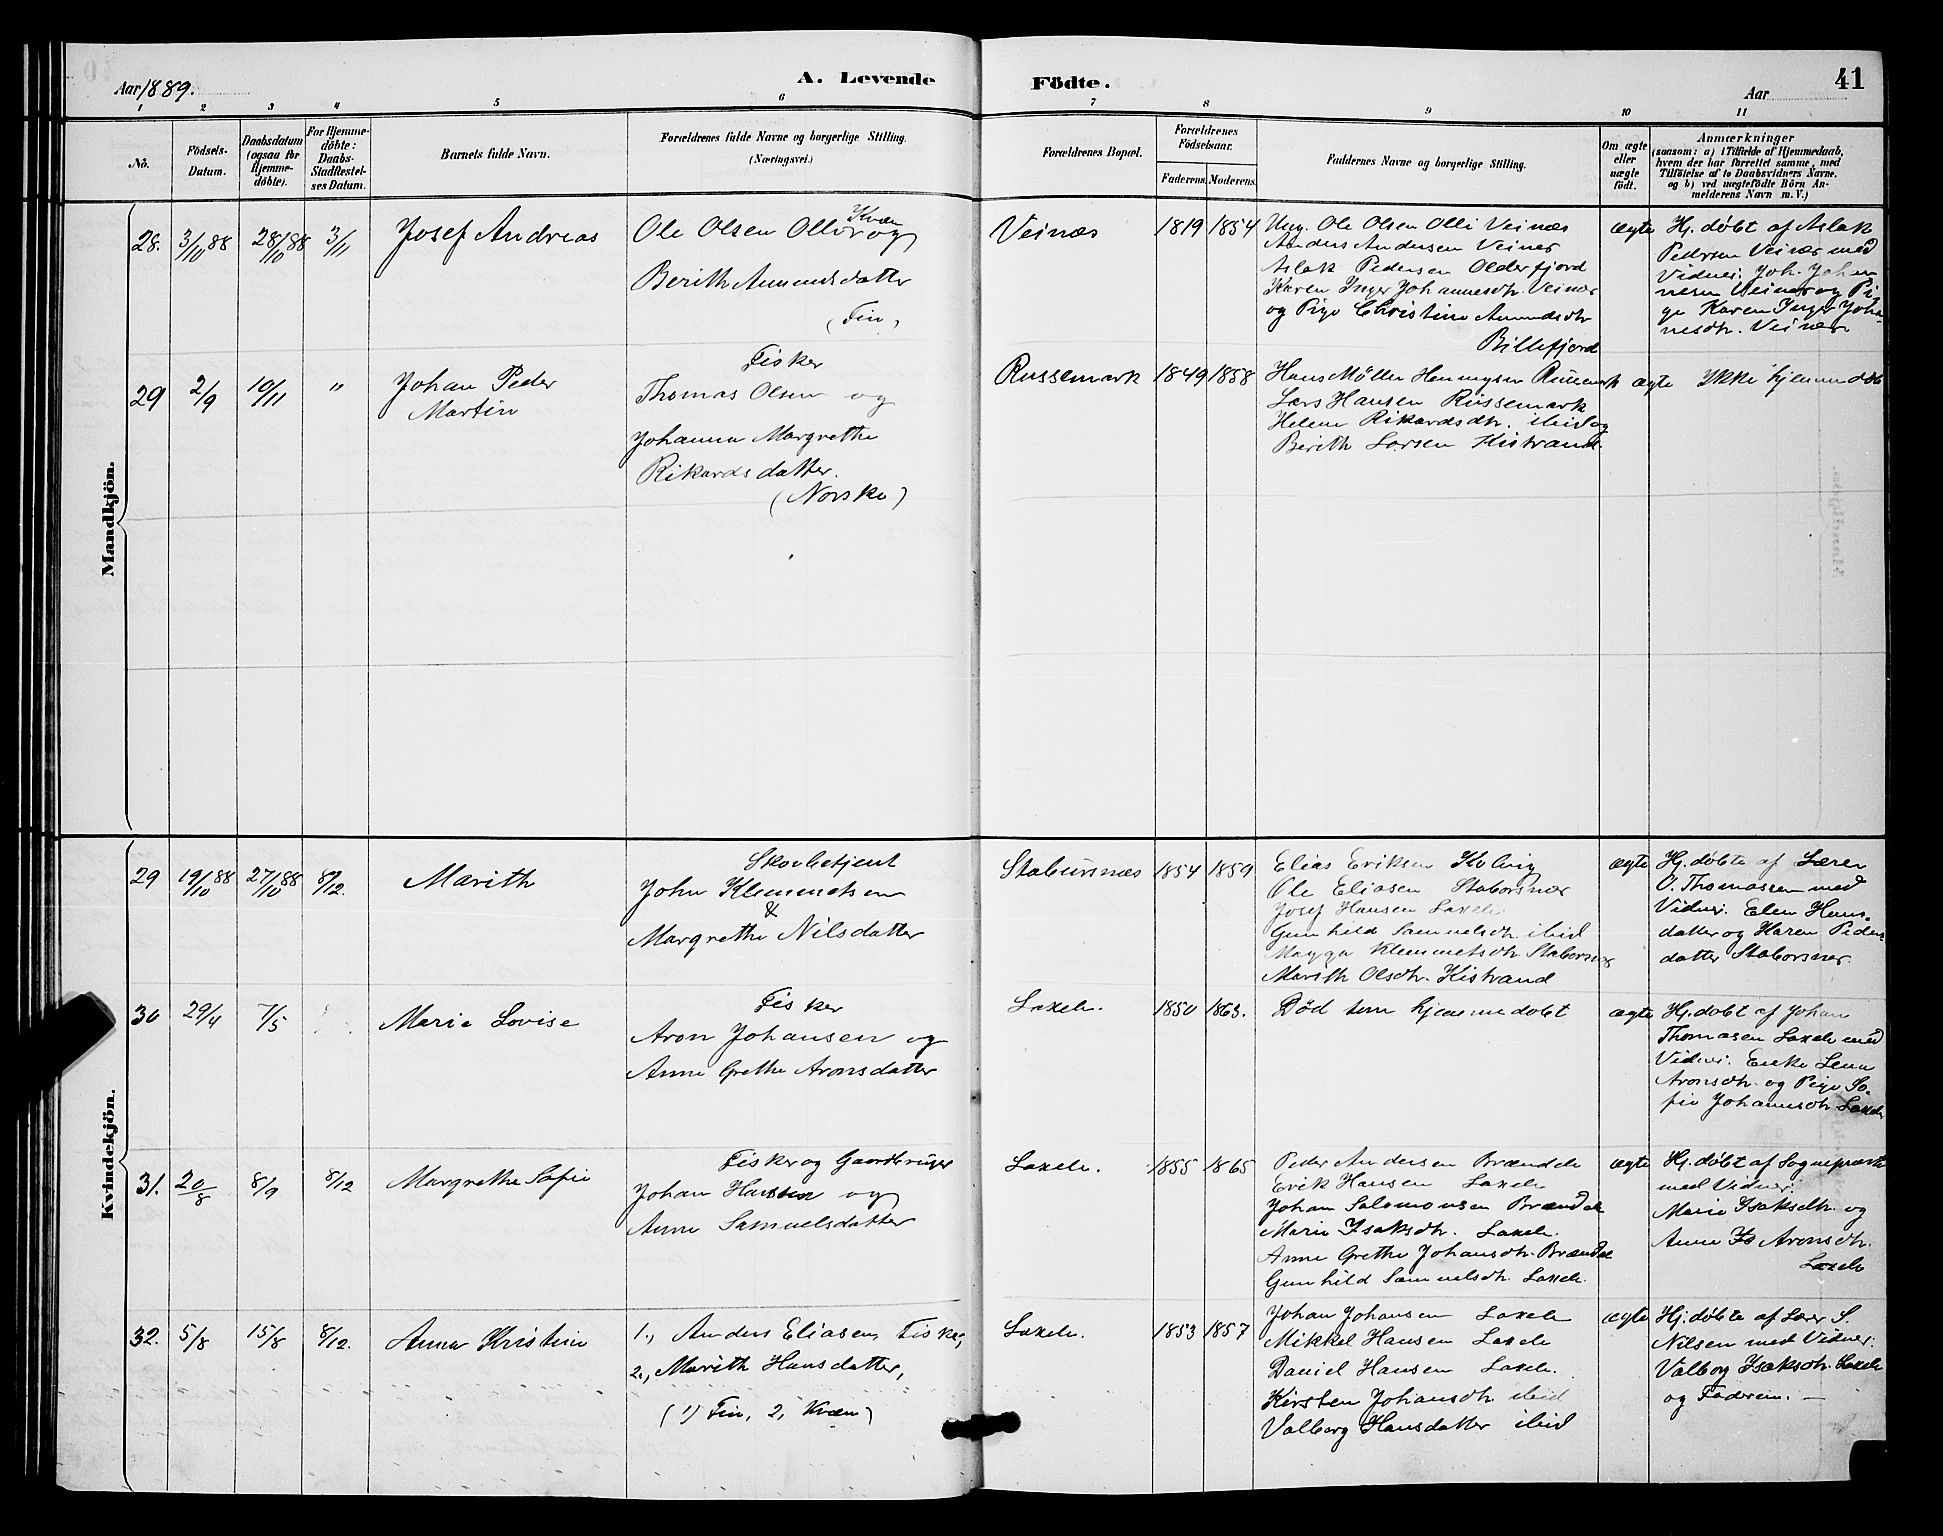 Aar 1889.
A. Levende
Födte.
Aar
41
1 2 3 4 5 6 7 8 9 10 11
No.
Födsels-
Datum.
Daabsdatum
(ogsaa for
Hjemme-
döbte).
For Hjemme-
döbte:
Daabs-
Stadfæstel-
ses Datum.
Barnets fulde Navn.
Forældrenes fulde Navne og borgerlige Stilling.
(Næringsvei.)
Forældrenes Bopæl.
Forældrenes
Födselsaar.
Faderens.
Moderens.
Faddernes Navne og borgerlige Stilling.
Om ægte
eller
uægte
födt.
Anmærkninger
(saasom: a) i Tilfælde af Hjemmedaab,
hvem der har forrettet samme, med
Tilföielse af to Daabsvidners Navne,
og b) ved uægtefödte Börn An-
melderens Navn m. V.)
Mandkjön.
28.
3/10 88
28/10 88
3/11
Josef Andreas
Kvæn
Ole Olsen Olli og
Berith Amundsdatter
(Fin)
Veinæs
1819
1854
Ung. Ole Olsen Olli Veinæs
Anders Andersen Veinæs
Aslak Pedersen Olderfjord
Karen Inger Johannesdtr. Veinæs
og Pige Christine Amundsdtr
Billefjord
ægte
Hj. døbt af Aslak
Pedersen Veinæs med
Vidner: Joh. Johan
nesen Veinæs og Pi-
ge Karen Inger Joha-
nesdtr. Veinæs
29
2/9
10/11
"
Johan Peder
Martin
Fisker
Thomas Olsen og
Johanna Margrethe
Rikardsdatter.
(Norske)
Russemark
1849
1858
Hans Møller Henningsen Russemark
Lars Hansen Russemark
Helene Rikardsdtr. ibid og
Berith Larsen Kistrand.
ægte
Ikke hjemmedøbt
Kvindekjön.
29
19/10 88
27/10 88
8/12.
Marith
Skovbetjent
John Klemmetsen
&
Margrethe Nilsdatter
Stabursnæs
1854
1859
Elias Eriksen Kolvig
Ole Eliasen Staborsnæs
Josef Hansen Laxelv
Gunhild Samuelsdtr ibid
Magga Klemmetsdtr Staborsnæs
Marith Olsdtr. Kistrand
ægte
Hj. døbte af Lærer
O. Thomassen med
Vidner: Elen Hans-
datter og Karen Peders
datter Staborsnæs.
30
29/4
7/5
Marie Lovise
Fisker
Aron Johansen og
Anne Grethe Aronsdatter
Laxelv.
1850
1863.
Død som hjemmedøbt
ægte
Hj. døbt af Johan
Thomasen Laxelv med
Vidner: Enke Lena
Aronsdtr. og Pige So-
fie Johannsdtr Laxelv
31.
20/8
8/9
8/12
Margrethe Sofie
Fisker og Gaardbruger
Johan Hansen og
Anne Samuelsdatter
Laxelv.
1855
1865
Peder Andersen Brændelv
Erik Hansen Laxelv
Johan Salomonsen Brændelv
Marie Isaksdtr. Laxelv.
Anne Grethe Johansdtr. Brændelv
Gunhild Samuelsdtr. Laxelv.
ægte
Hj. døbt af Sognepræst
med Vidner:
Marie Isaksdtr. og
Anne Is Aronsdtr.
Laxelv
32.
5/8
15/8
8/12.
Anna Kristine
1., Anders Eliasen, Fisker,
2., Marith Hansdatter,
(1) Fin, 2, Kvæn)
Laxelv.
1853
1857
Johan Johansen Laxelv
Mikkel Hansen Laxelv
Daniel Hansen Laxelv.
Kirsten Johansdtr ibid
Valborg Hansdatter ibid
ægte
Hj. døbte af Lærer S.
Nilsen med Vidner:
Valborg Isaksdtr. Laxelv
og Faderen. —